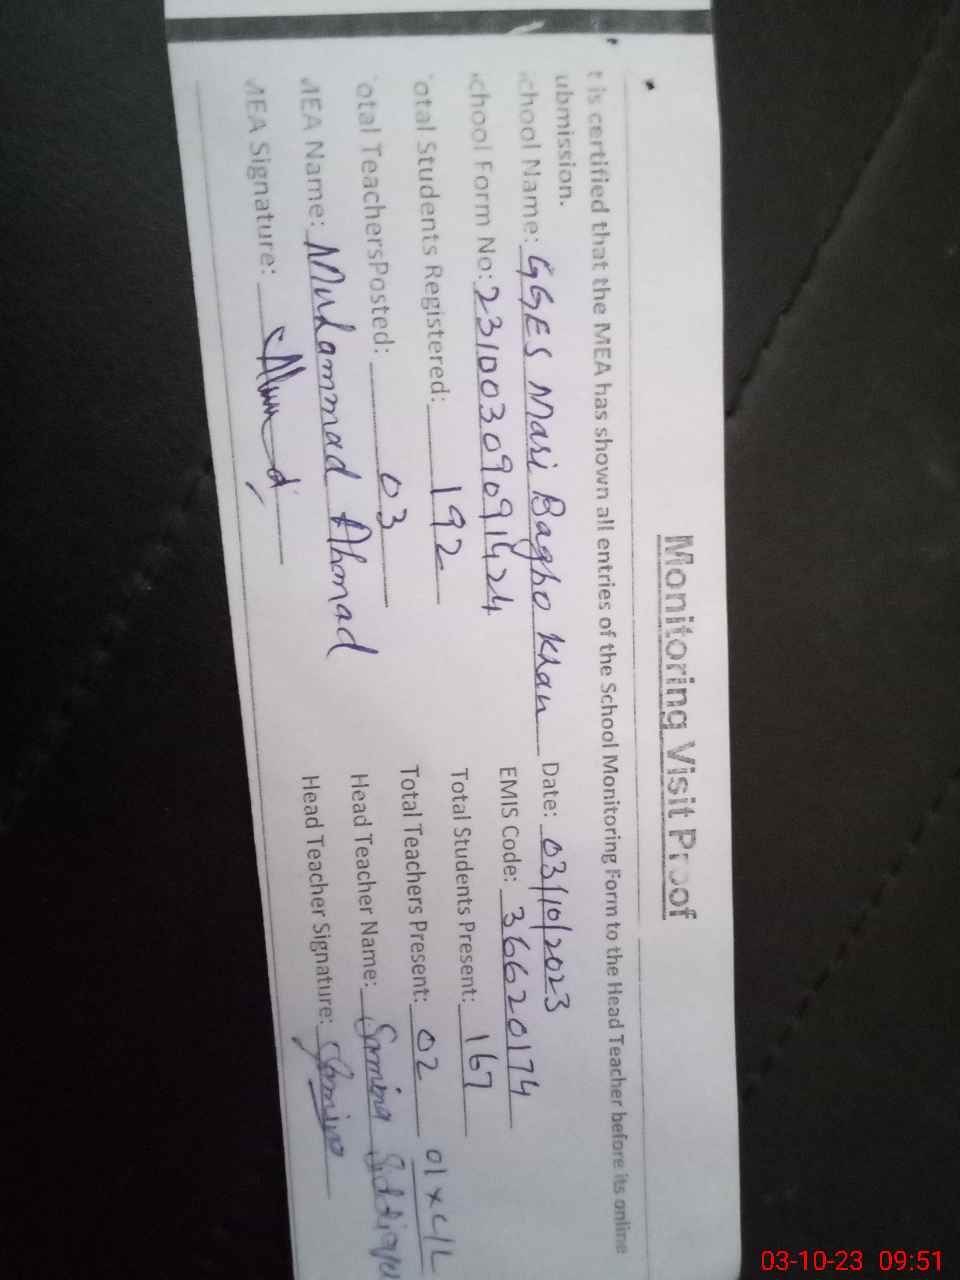 Monitoring Visit Proof
t is certified that the MEA has shown all entries of the School Monitoring Form to the Head Teacher before its online
ubmission.
chool Name: GGES Mari Bagho Khan Date: 03/10/2023
chool Form No: 23100309091424 EMIS Code: 36620174
otal Students Registered: 192 Total Students Present: 167
otal TeachersPosted: 03 Total Teachers Present: 02 01xC/L
MEA Name: Muhammad Ahmad Head Teacher Name: Samina Siddique
MEA Signature: Head Teacher Signature: Samina
03-10-23 09:51